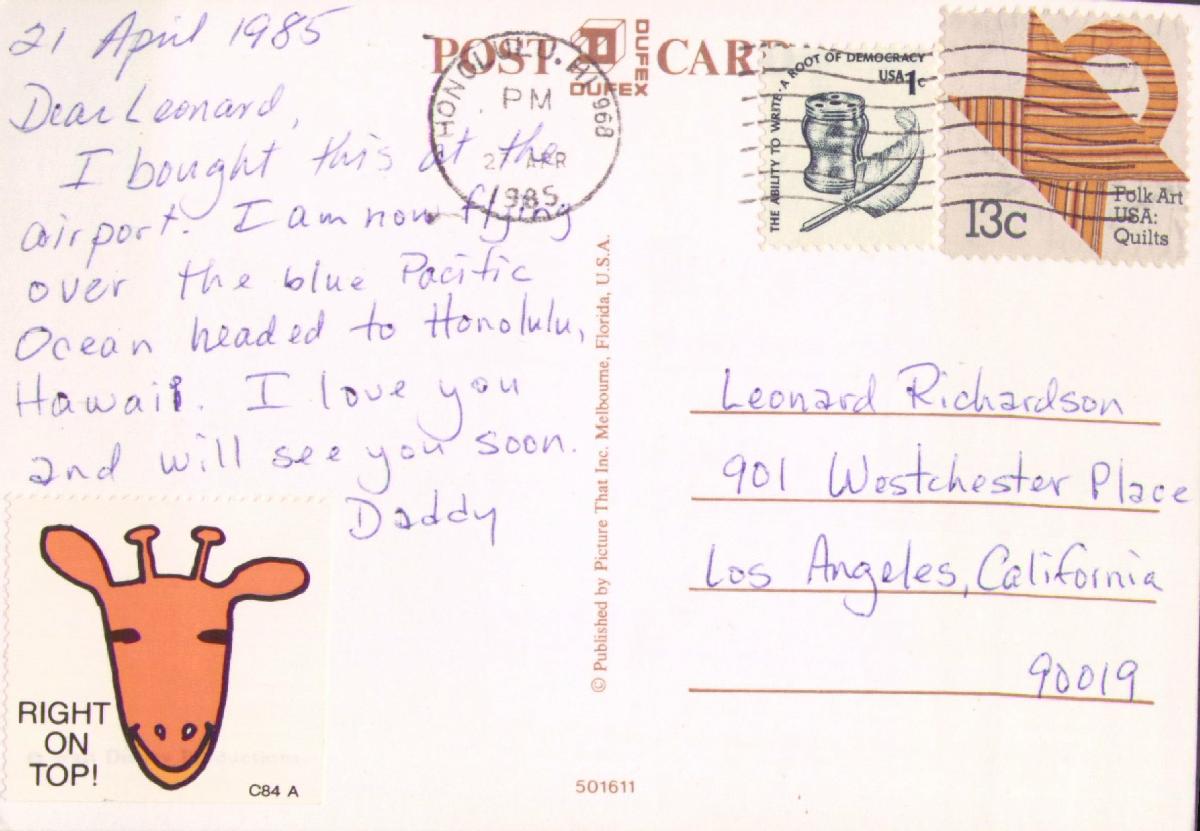 21 April 1985
Dear Leonard,
I bought this at the
airport. I am now flying
over the blue Pacific
Ocean headed to Honolulu,
Hawaii. I love you
and will see you soon.
Daddy
RIGHT
ON
TOP!
C84 A
POST CARD
DUFEX
DUFEX
HONOLULU, HI 968
PM
APR
1985
THE ABILITY TO WRITE · A ROOT OF DEMOCRACY
USA 1c
13c
Folk Art
USA:
Quilts
© Published by Picture That Inc. Melbourne, Florida, U.S.A.
Leonard Richardson
901 Westchester Place
Los Angeles, California
90019
501611